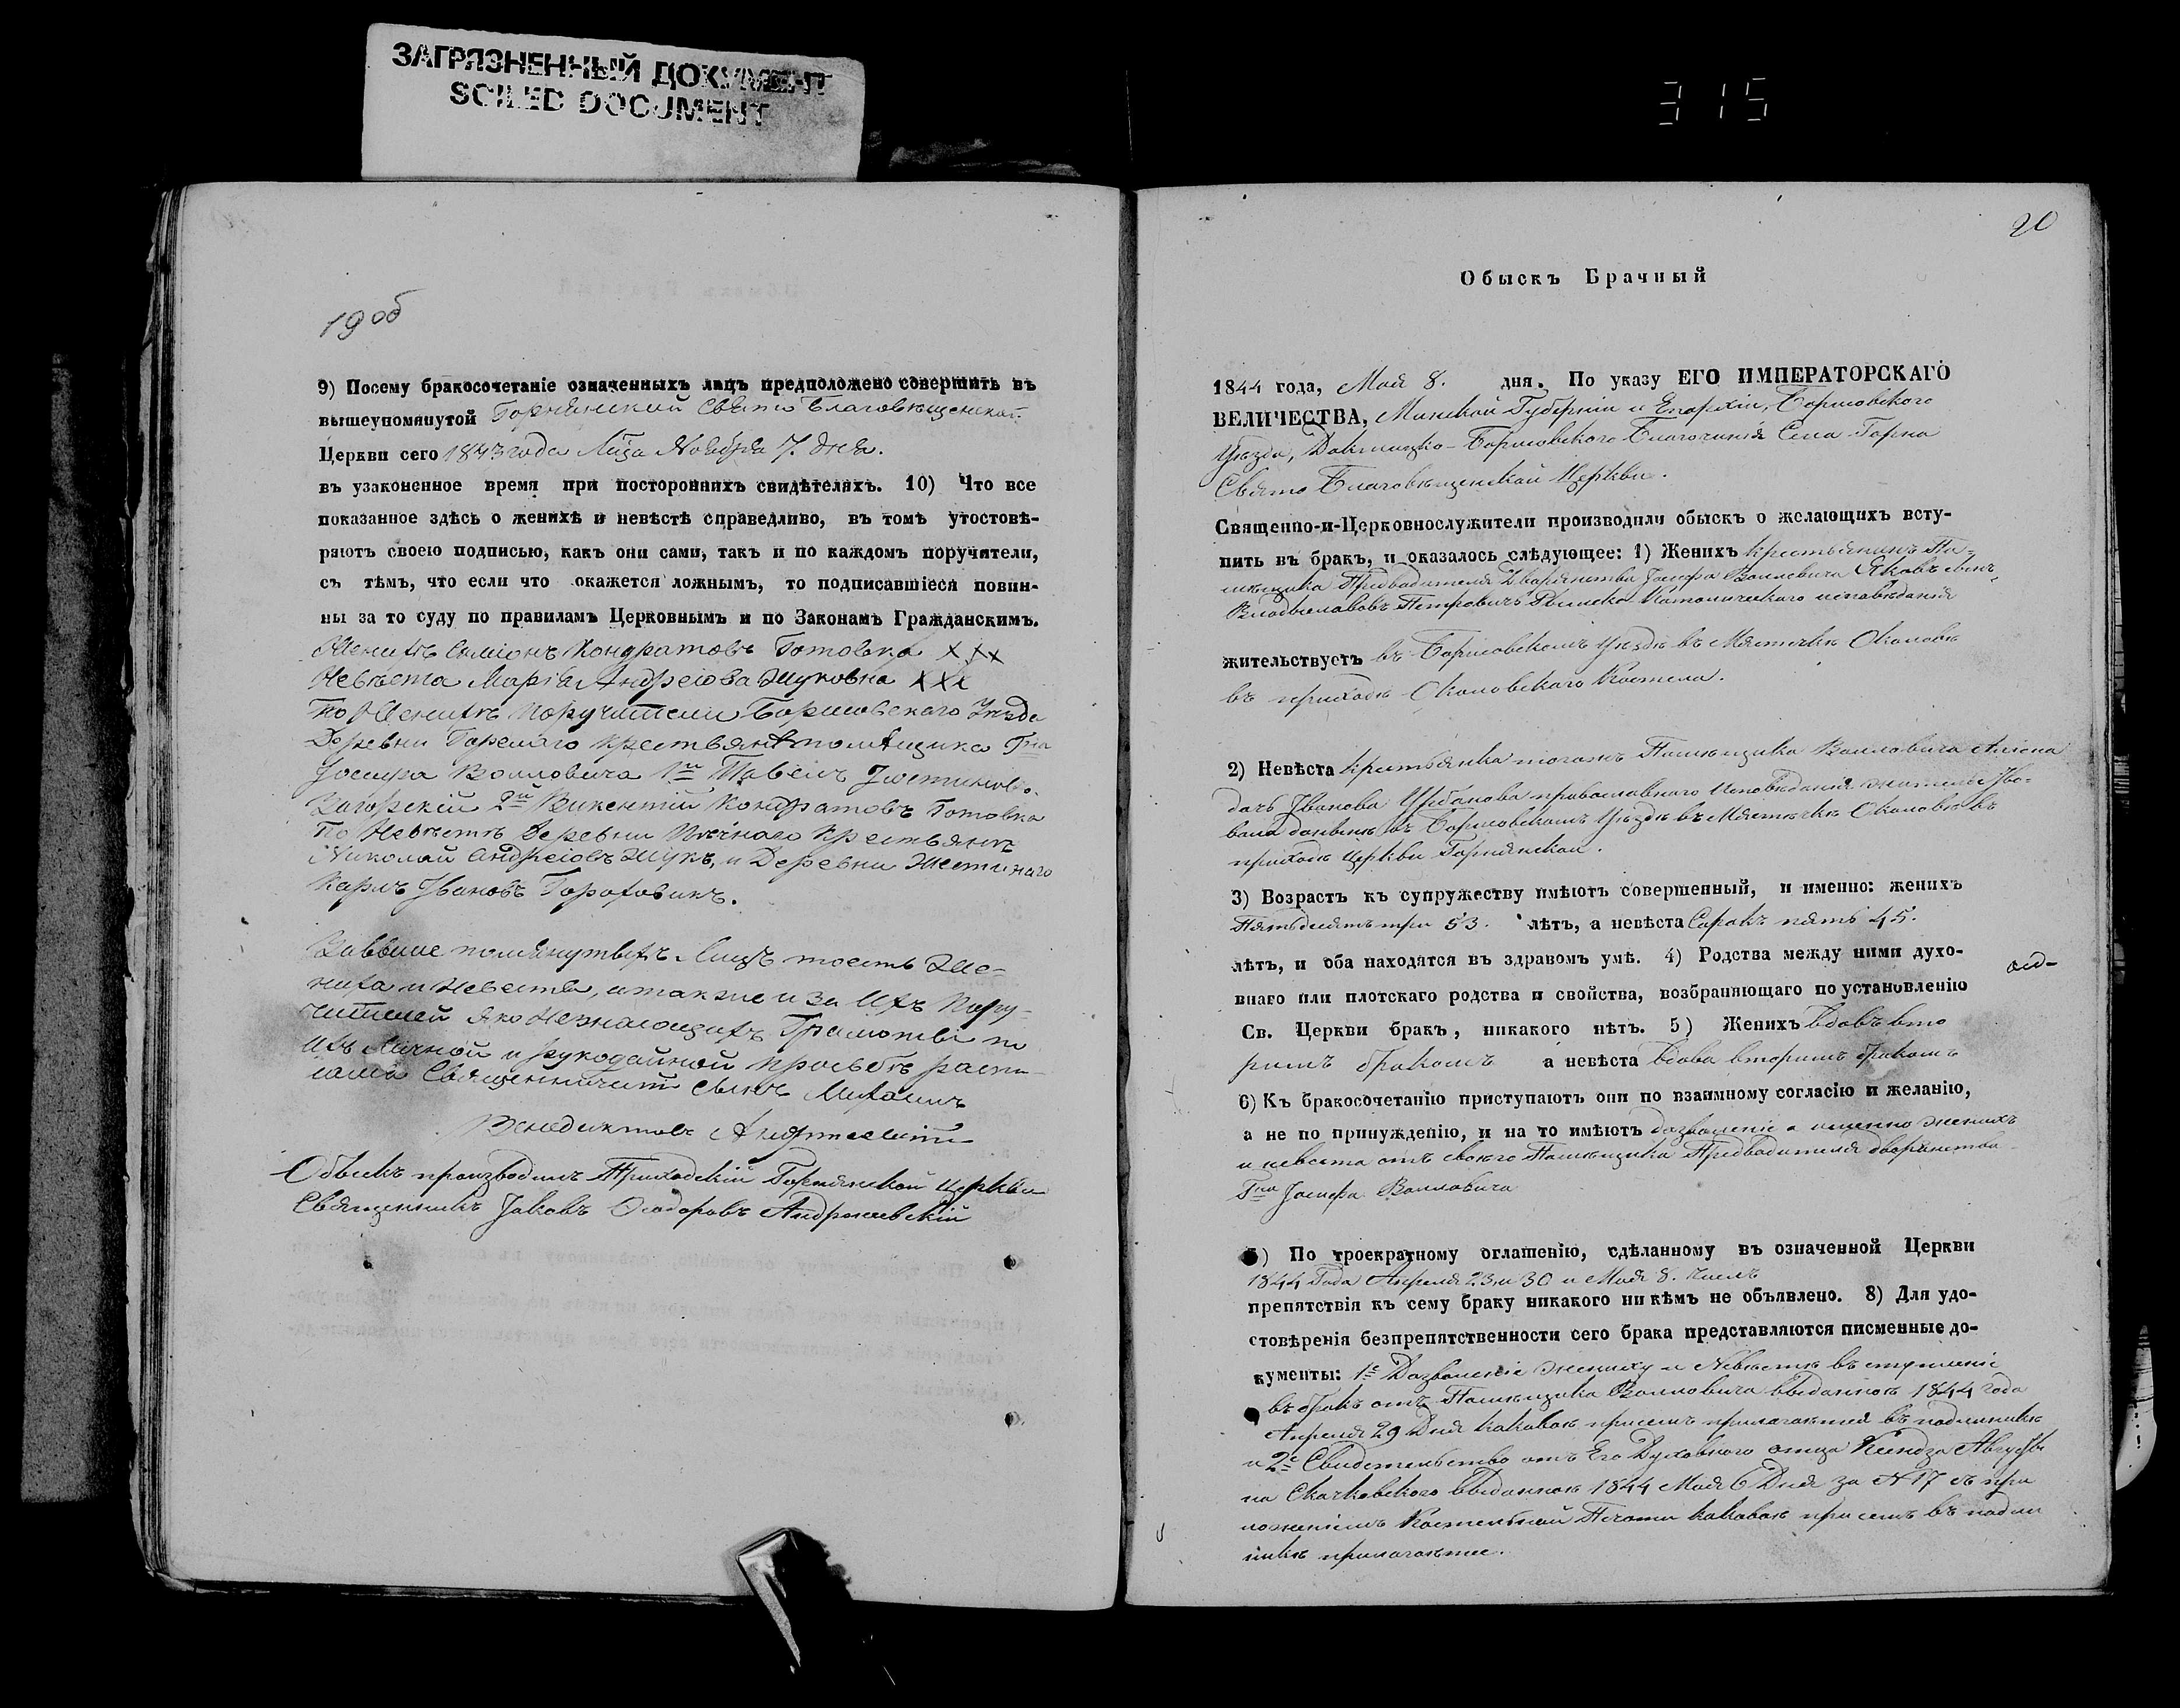 ЗАГРЯЗНЕННЫЙ ДОКУМЕНТ
SOILED DOCUMENT
315
19 об
9) Посему бракосочетаніе означенныхъ лицъ предположено совершить въ
вышеупомянутой Горнянской Свято Благовѣщенской
Церкви сего 1843 года Мца Ноября 7. дня.
въ узаконенное время при постороннихъ свидѣтеляхъ. 10) Что все
показанное здѣсь о женихѣ и невѣстѣ справедливо, въ томъ утостовѣ-
ряютъ своею подписью, какъ они сами, такъ и по каждомъ поручители,
съ тѣмъ, что если что окажется ложнымъ, то подписавшіеся повин-
ны за то суду по правиламъ Церковнымъ и по Законамъ Гражданскимъ.
Женихъ Симіонъ Кондратовъ Готовка ххх
Невѣста Марія Андреіова Жуковна ххх
По Женихѣ Поручители Борисовскаго Уѣзда
Деревни Горелаго крестьяне помѣщика Гна
Іосифа Воловича 1й Павелъ Іюстиновъ
Загорскій 2й Викентій Кондратовъ Готовка
По Невѣстѣ Деревни крестьянъ
Николай Андреіовъ Жукъ, и Деревни
Карлъ Івановъ Гороховикъ.
Завыше помянутыхъ Лицъ тоесть Же-
ниха и Невесты, атакже и за Ихъ Пору-
чителей яко Незнающихъ Грамоты по
Ихъ Личной и рукодайной просьбѣ распи-
сался сынъ Михаилъ
Венедиктовъ
Обыскъ производилъ Приходскій Горнянской Церкви
Священникъ Іаковъ Ѳеодоровъ Андржеевскій
20
Обыскъ Брачный
1844 года, Мая 8. дня. По указу ЕГО ИМПЕРАТОРСКАГО
ВЕЛИЧЕСТВА, Минской Губерніи и Епархіи, Борисовского
Уѣзда, Докшицко-Борисовского Благочинія Села Горна
Свято Благовѣщенской Церкви.
Священно-и-Церковнослужители производили обыскъ о желающихъ всту-
пить въ бракъ, и оказалось слѣдующее: 1) Женихъ крестьянинъ По-
мѣщика Предводителя Дворянства Іосифа Воловича Яковъ сынъ
Петровичъ Римско-Католическаго исповѣданія
жительствуетъ въ Борисовскомъ Уѣздѣ въ Мястечкѣ Околовѣ
въ приходѣ Околовского Костела.
2) Невѣста крестьянка тогожъ Помѣщика Воловича
дочь Іванова Урбанова православного исповѣданія
въ Борисовскомъ Уѣздѣ въ Мястечкѣ Околовѣ въ
приходѣ Церкви Горнянской.
3) Возрастъ къ супружеству имѣютъ совершенный, и именно: женихъ
Пятьдесятъ три 53. лѣтъ, а невѣста Сорокъ пять 45.
лѣтъ, и оба находятся въ здравомъ умѣ. 4) Родства между ними духо-
внаго или плотскаго родства и свойства, возбраняющаго по установленію
Св. Церкви бракъ, никакого нѣтъ. 5) Женихъ вдовъ вто
рымъ бракомъ а невѣста вдова вторымъ бракомъ
6) Къ бракосочетанію приступаютъ они по взаимному согласію и желанію,
а не по принужденію, и на то имѣютъ дозволеніе а именно женихъ
и невѣста отъ своего Помѣщика Предводителя дворянства
Гна Іосифа Воловича
7) По троекратному оглашенію, сдѣланному въ означенной Церкви
1844 Года Апреля 23 и 30 и Мая 8. числъ
препятствія къ сему браку никакого ни кѣмъ не объявлено. 8) Для удо-
стовѣренія безпрепятственности сего брака представляются писменные до-
кументы: 1е Дозволеніе жениху и Невѣстѣ въ ступленіе
въ бракъ отъ Помѣщика Воловича выданное 1844 года
Апреля 29 Дня каковое присемъ прилагается въ подлинникѣ
и 2е Свидетельство отъ Его Духовного отца Ксендза Августы
на Скачковского выданное 1844 Мая 6 Дня за N 17 съ при
ложеніемъ Костельной Печати каковое при семъ въ подлин
никѣ прилагается.